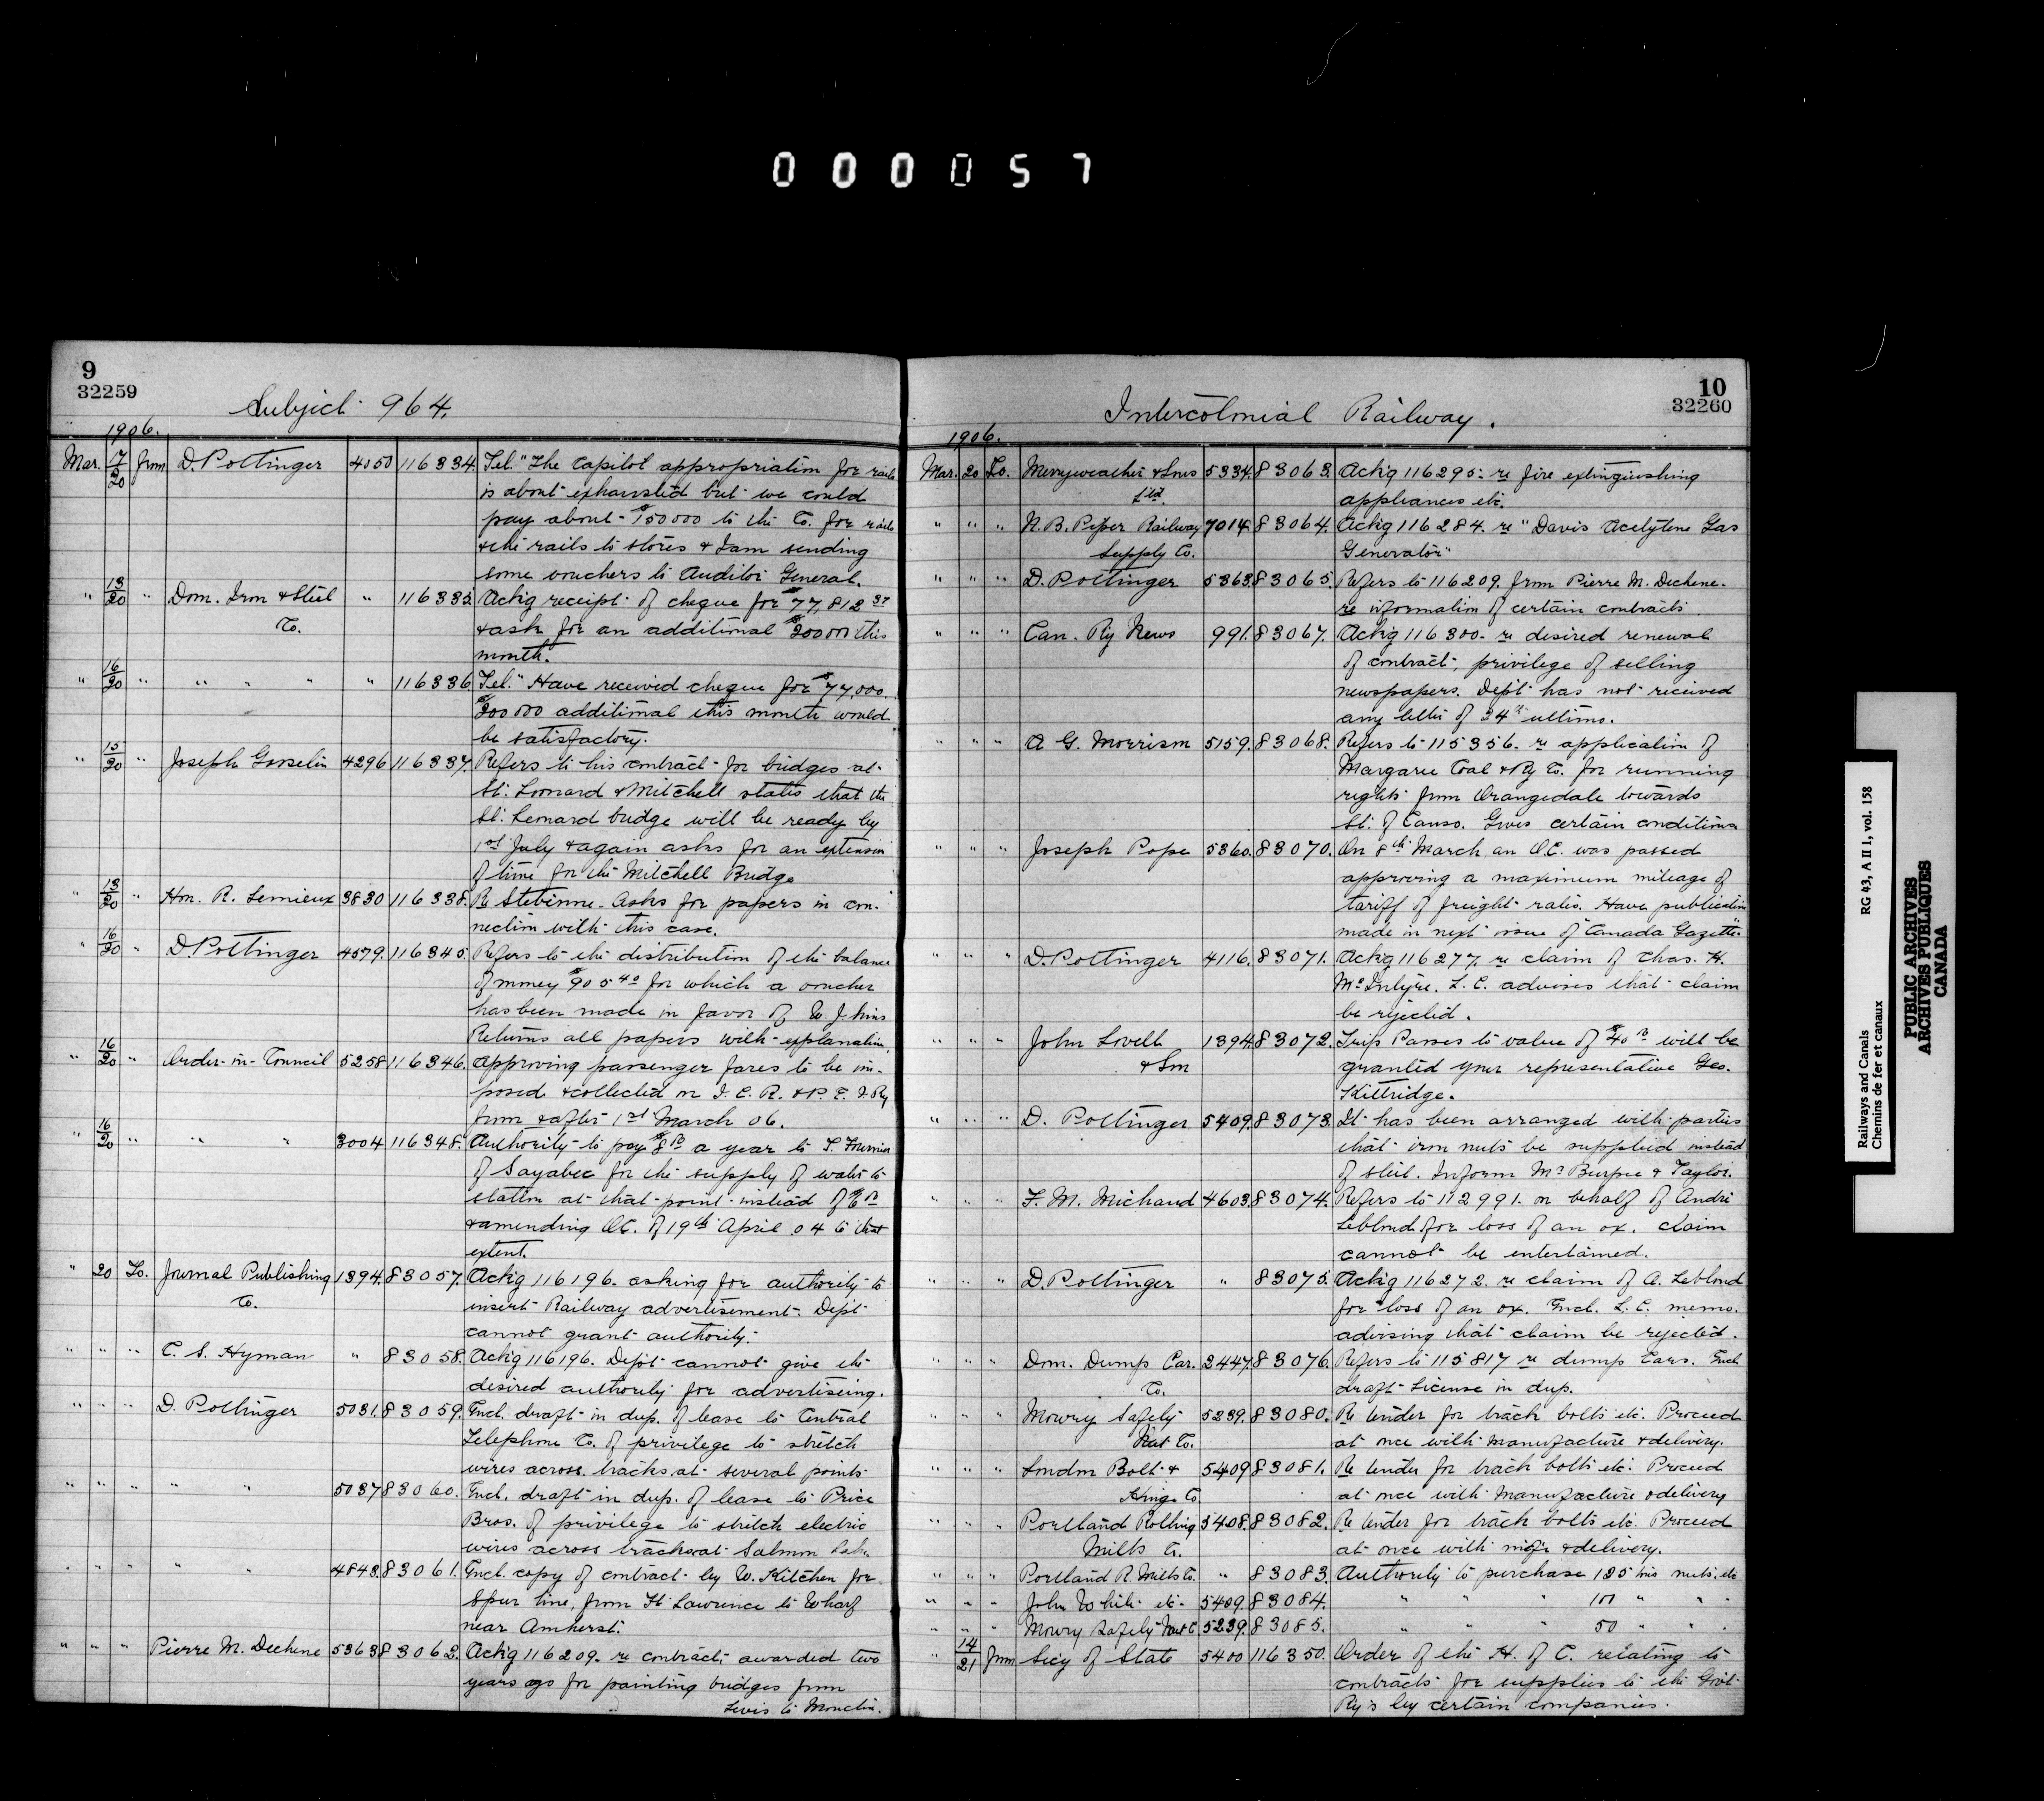 000057
9
32259
Subject 964.
1906.
Mar. 17/20 from D. Pottinger 4050 116334. Tel. "The Capitol appropriation for rails
is about exhausted but we could
pay about $150000 to the Co. for rails
& the rails to stores & I am sending
some vouchers to Auditor General.
" 13/20 " Dom. Iron & Steel " 116335. Ack'g receipt of cheque for $77,812 37
Co. & ask for an additional $200000 this
month.
" 16/20 " " " " " 116336 Tel. "Have received cheque for $77,000.
$200000 additional this month would
be satisfactory.
" 15/20 " Joseph Gosselin 4296 116337. Refers to his contract for bridges at
St. Leonard & Mitchell states that the
St. Leonard bridge will be ready by
1st July & again asks for an extension
of time for the Mitchell Bridge
" 13/20 " Hon. R. Lemieux 3830 116338. Re Stebinne. Asks for papers in con-
nection with this case.
" 16/20 " D. Pottinger 4579. 116345. Refers to the distribution of the balance
of money $905 40 for which a voucher
has been made in favor of W. J.
Returns all papers with explanation.
" 16/20 " Order-in-Council 5258 116346. Approving passenger fares to be im-
posed & collected on I.C.R. & P.E.I. Ry
from & after 1st March 06.
" 16/20 " " " 3004 116348. Authority to pay $8 00 a year to T.
of Sayabec for the supply of water to
station at that point instead of $6 00
& amending O.C. of 19th April 04 to that
extent.
" 20 To. Journal Publishing 1394. 83057. Ack'g 116196. asking for authority to
Co. insert Railway advertisement. Dep't
cannot grant authority.
" " " C. S. Hyman " 83058. Ack'g 116196. Dep't cannot give the
desired authority for advertiseing.
" " " D. Pottinger 5031. 83059. Encl. draft in dup. of lease to Central
Telephone Co. of privilege to stretch
wires across tracks at several points
" " " " " 5037 83060. Encl. draft in dup. of lease to Price
Bros. of privilege to stretch electric
wires across tracks at Salmon Lake.
" " " " " 4843. 83061. Encl. copy of contract by W. Kitchen for
Spur line, from St Lawrence to Wharf
near Amherst.
" " " Pierre M. Dechene 5363 83062. Ack'g 116209. re contracts awarded two
years ago for painting bridges from
Levis to Moncton.
10
32260
Intercolonial Railway.
1906.
Mar. 20 To. Merryweather & Sons 5334. 83063. Ack'g 116295. re fire extinguishing
Ltd. appliances etc.
" " " N. B. Peper Railway 7014. 83064. Ack'g 116284. re "Davis Acetylene Gas
Supply Co. Generator"
" " " D. Pottinger 5363. 83065. Refers to 116209. from Pierre M. Dechene.
re information of certain contracts.
" " " Can. Ry News 991. 83067. Ack'g 116300. re desired renewal
of contract, privilege of selling
newspapers. Dep't has not received
any letter of 24th ultimo.
" " " A. G. Morrison 5159. 83068. Refers to 115356. re application of
Margaree Coal & Ry Co. for running
rights from Orangedale towards
St. of Canso. Gives certain conditions
" " " Joseph Pope 5360. 83070. On 8th March an O.C. was passed
approving a maximum mileage of
tariff of freight rates. Have publication
made in next issue of "Canada Gazette."
" " " D. Pottinger 4116. 83071. Ack'g 116277. re claim of Chas. H.
McIntyre. L.C. advises that claim
be rejected.
" " " John Lovell 1394. 83072. Trip Passes to value of $40 00 will be
& Son granted your representative Geo.
Kittridge.
" " " D. Pottinger 5409. 83073. It has been arranged with parties
that iron nuts be supplied instead
of steel. Inform Mr Burpee & Taylor.
" " " F. M. Michaud 4603. 83074. Refers to 112991. on behalf of André
Leblond for loss of an ox. Claim
cannot be entertained.
" " " D. Pottinger " 83075. Ack'g 116272. re claim of A. Leblond
for loss of an ox. Encl. L.C. memo.
advising that claim be rejected.
" " " Dom. Dump Car. 2447. 83076. Refers to 115817 re dump Cars. Encl.
Co. draft License in dup.
" " " Mowry Safety 5239. 83080. Re tender for track bolts etc. Proceed
Nut Co. at once with manufacture & delivery.
" " " London Bolt & 5409 83081. Re tender for track bolts etc. Proceed
Hinge Co. at once with manufacture & delivery
" " " Portland Rolling 5408. 83082. Re tender for track bolts etc. Proceed
Mills Co. at once with m'f'g & delivery.
" " " Portland R. Mills Co. " 83083. Authority to purchase 125 tons nuts, etc
" " " John White etc. 5409. 83084. " " " 100 " " "
" " " Mowry Safety Nut C 5239. 83085. " " " 50 " " "
" 14/21 from Sec'y of State 5400 116350. Order of the H. of C. relating to
contracts for supplies to the Gov't
Ry's by certain companies.
Railways and Canals RG 43, A II 1, vol. 158
Chemins de fer et canaux
PUBLIC ARCHIVES
ARCHIVES PUBLIQUES
CANADA